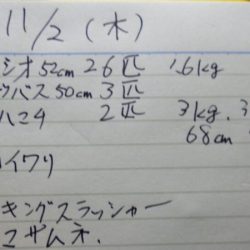 11/2 (木)
シオ 52cm 26匹 1.6kg
ツバス 50cm 3匹
ハミタ 2匹 3kg.3
68cm
イワリ
キングスラッシャー
マサムネ.